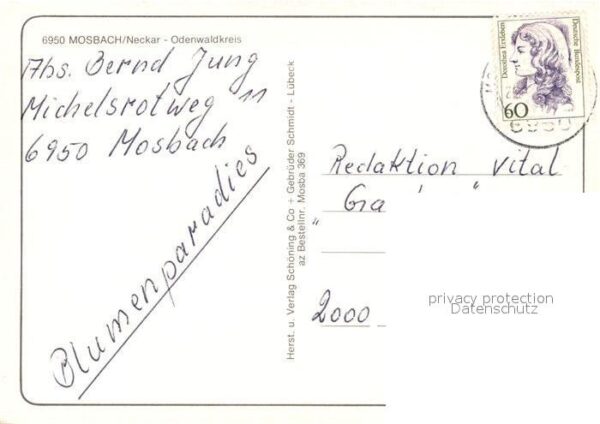 6950 MOSBACH/Neckar - Odenwaldkreis
Abs. Bernd Jung
Michelsrotweg 11
6950 Mosbach
Blumenparadies
Herst. u. Verlag Schöning & Co + Gebrüder Schmidt - Lübeck
az Bestellnr. Mosba 369
Dorothea Erxleben
Deutsche Bundespost
60
6950
Redaktion Vital
" Gra "
2000
privacy protection
Datenschutz